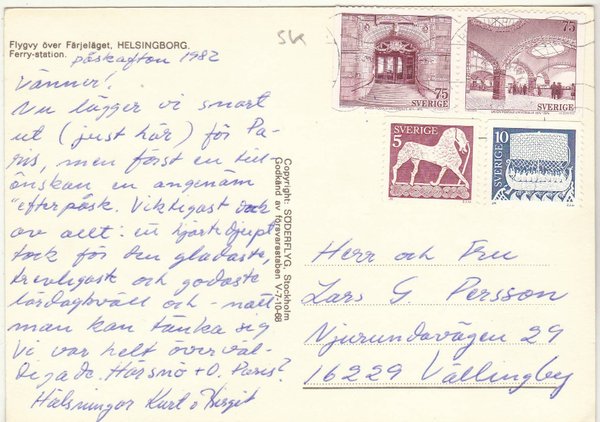 Flygvy över Färjeläget, HELSINGBORG.
Ferry-station.
påskafton 1982
Vänner!
Nu lägger vi snart
ut (just här) för Pa-
ris, men först en till-
önskan en angenäm
"efterpåsk. Viktigast
av allt: en hjärtdjupt
tack för den gladaste,
trevligaste och godaste
lördagskväll och -natt
man kan tänka sig
Vi var helt överväl-
digade.
Hälsningar Kurt o Birgit
SK
75
SVERIGE
75
SVERIGE
SVERIGE
5
10
SVERIGE
Copyright: SÖDERFLYG, Stockholm
Godkänd av försvarsstaben V-7-10-68
Herr och Fru
Lars G. Persson
Njurundavägen 29
16229 Vällingby